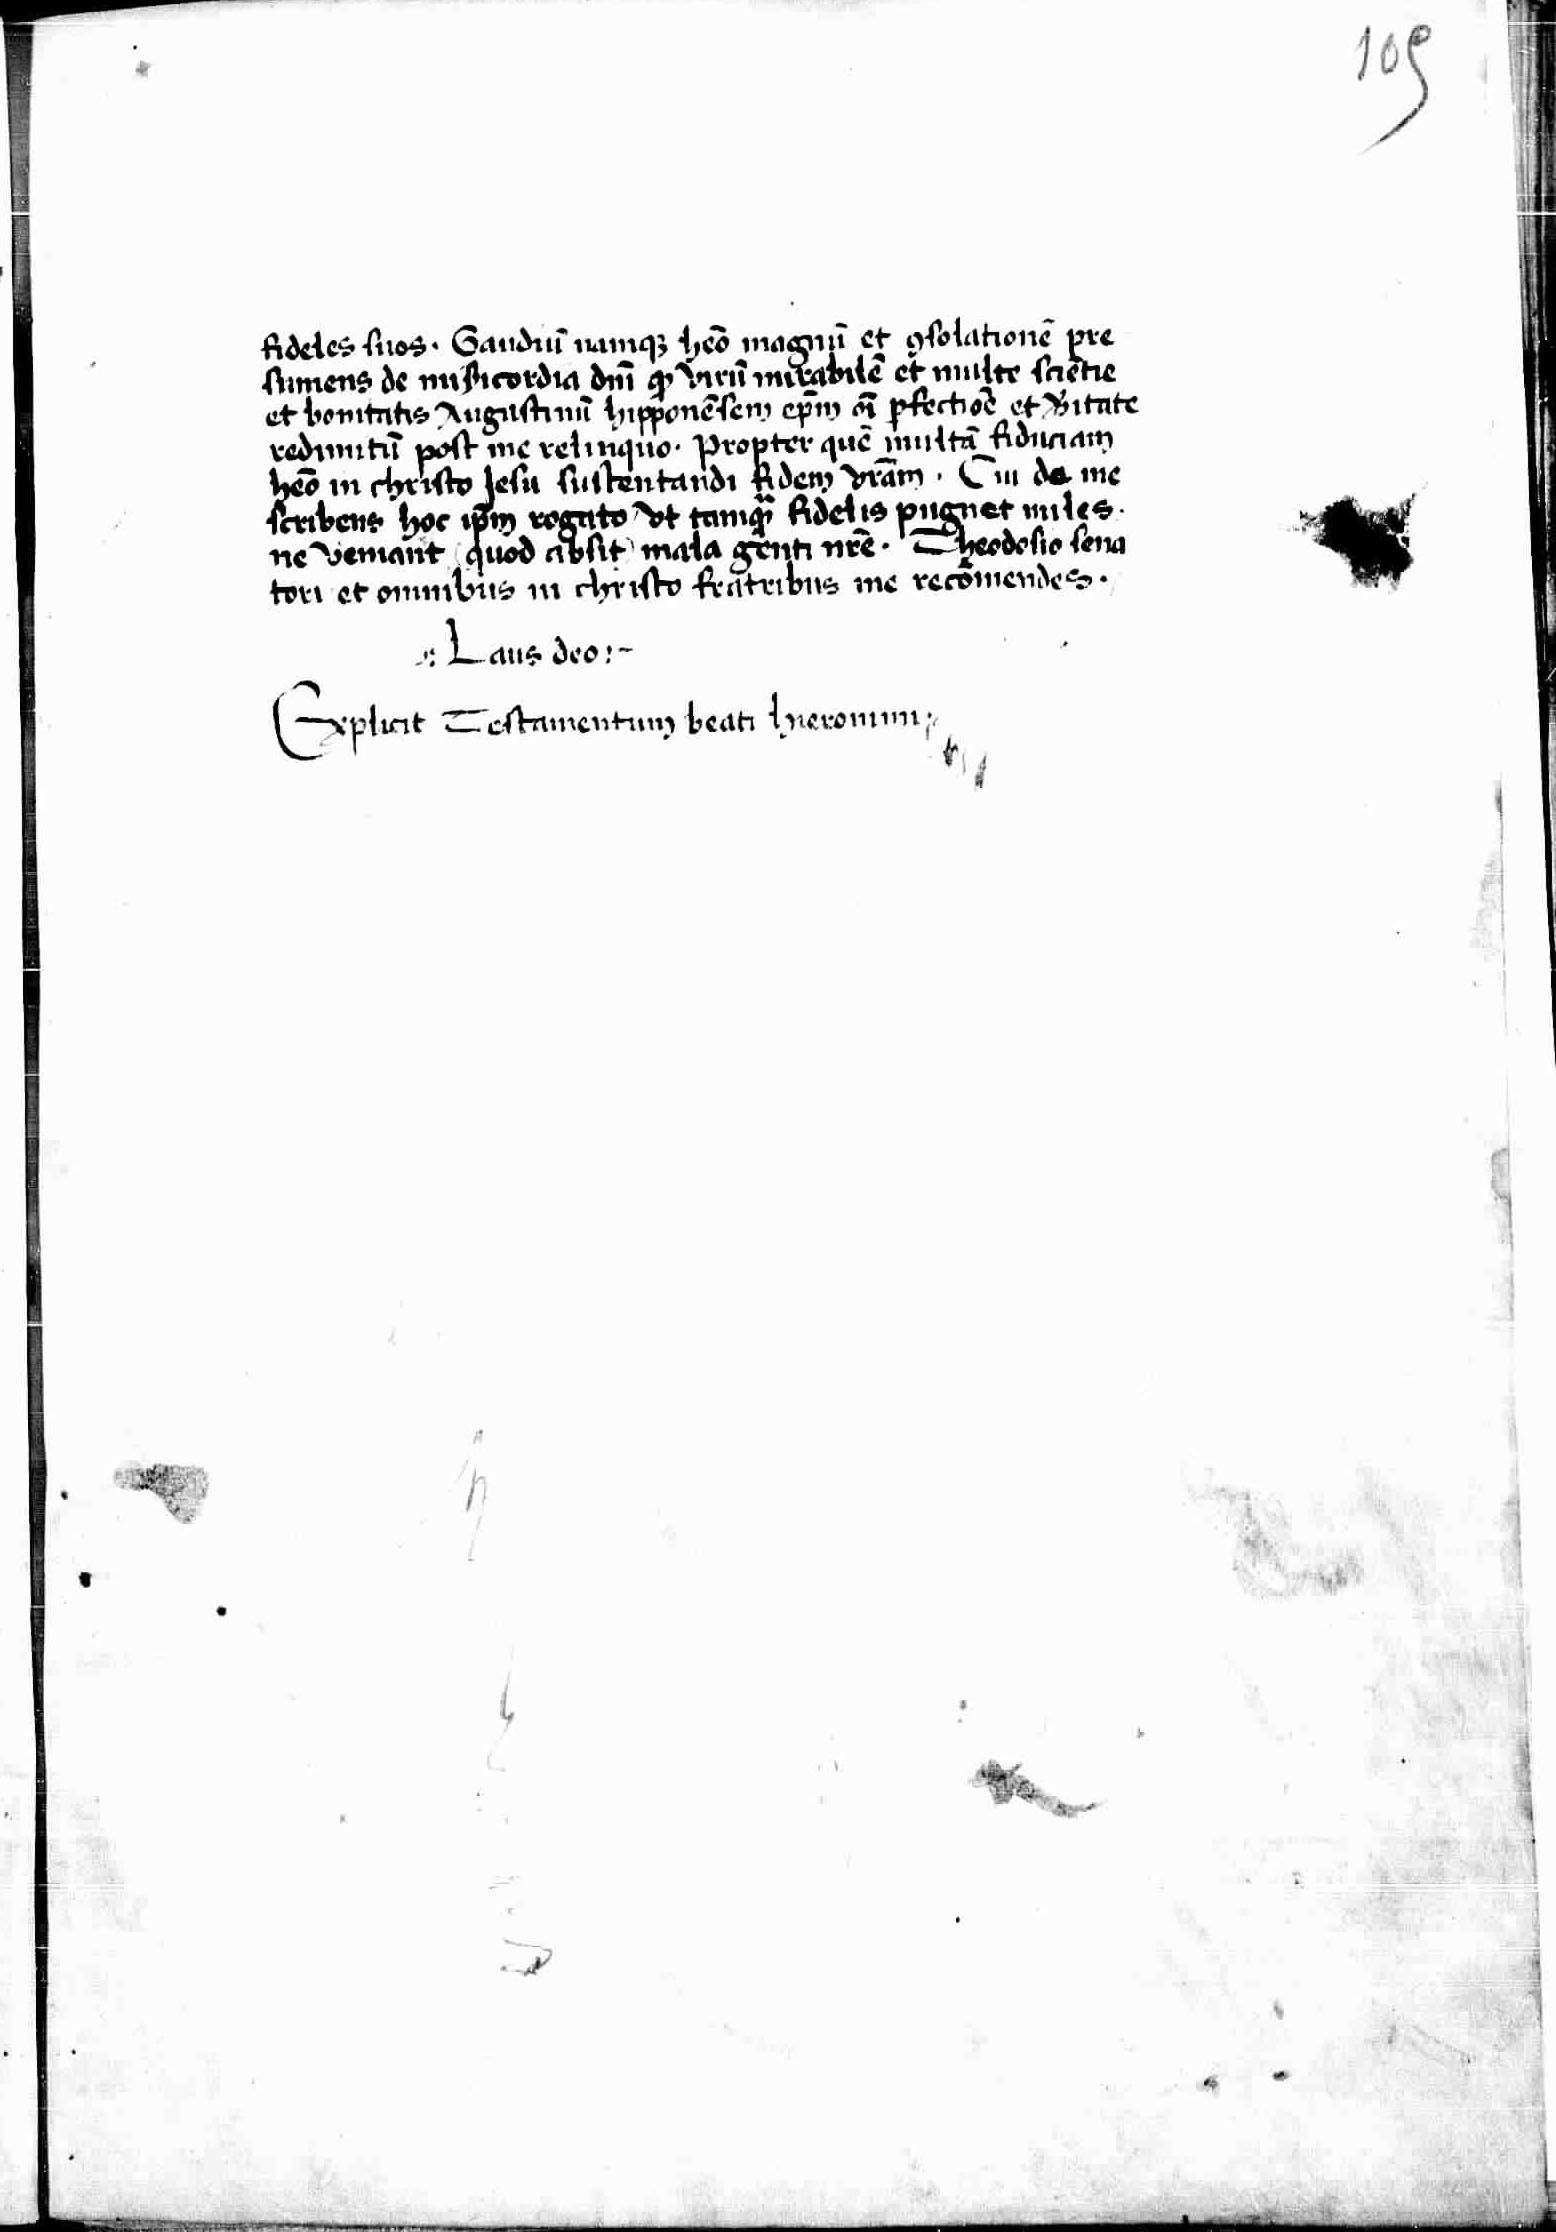 109
fideles suos. Gaudiū namqꝫ heō magnū et ꝯsolationē pre
sumens de mīsicordia dn̄i qꝙ virū mirabilē et multe sciētie
et bonitatis Augustinū hipponēsem ep̄m oī ꝑfectiōe et v̄itate
redimitū post me relinquo. Propter quē multā fiduciam
heō in christo Jesu sustentandi fidem vr̄am. Cui de me
scribens hoc ip̄m rogato vt tamqꝫ fidelis pugnet miles.
ne veniant (quod absit) mala genti nr̄e. Theodosio sena
tori et omnibus in christo fratribus me recōmendes.
Laus deo:~
Explicit Testamentum beati hieronimi;